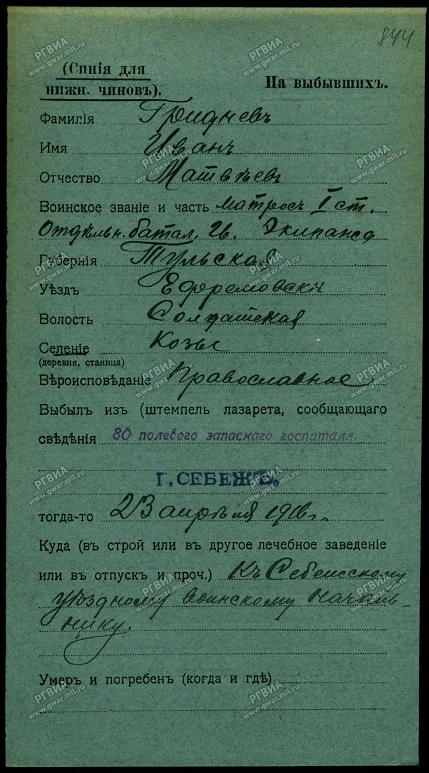 844
(Синія для
нижн. чиновъ).
На выбывшихъ.
Фамилія Гридневъ
Имя Иванъ
Отчество Матвѣевъ
Воинское званіе и часть матросъ I ст.
Отдѣльн. батал. Гв. Экипажа
Губернія Тульская
Уѣздъ Ефремовскій
Волость Солдатская
Селеніе Козье
(деревня, станица)
Вѣроисповѣданіе Православное
Выбылъ изъ (штемпель лазарета, сообщающаго
свѣдѣнія 80 полевого запаснаго госпиталя
Г. СЕБЕЖЪ.
тогда-то 23 апрѣля 1916 г.
Куда (въ строй или въ другое лечебное заведеніе
или въ отпускъ и проч.) Къ Себежскому
уѣздному воинскому началь-
нику.
Умеръ и погребенъ (когда и гдѣ)
РГВИА
www.gwar.mil.ru